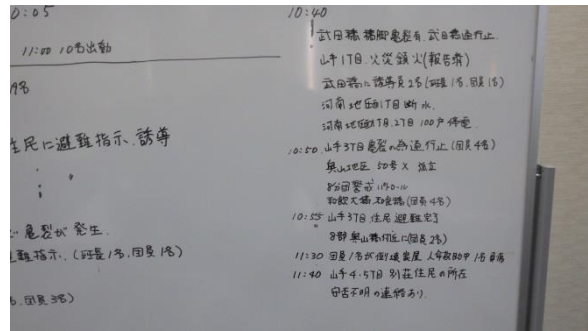 0:05
11:00 10名出動
1名
住民に避難指示、誘導
亀裂が発生.
避難指示. (班長1名.団員1名)
名.団員3名)
10:40
武田橋 橋脚亀裂有. 武田橋通行止.
山手1丁目. 火災鎮火(報告済)
武田橋に誘導員2名(班長1名.団員1名)
河南地区1丁目断水.
河南地区1丁目.2丁目 100戸停電.
10:50 山手3丁目亀裂の為通行止(団員4名)
奥山地区 50号×
8分団警戒パトロール
(団員4名)
10:55 山手3丁目 住民避難完了
8部 奥山橋付近に(団員2名)
11:30 団員1名が倒壊家屋 人命救助中 1名負傷
11:40 山手4.5丁目 別荘住民の所在
安否不明の連絡あり.